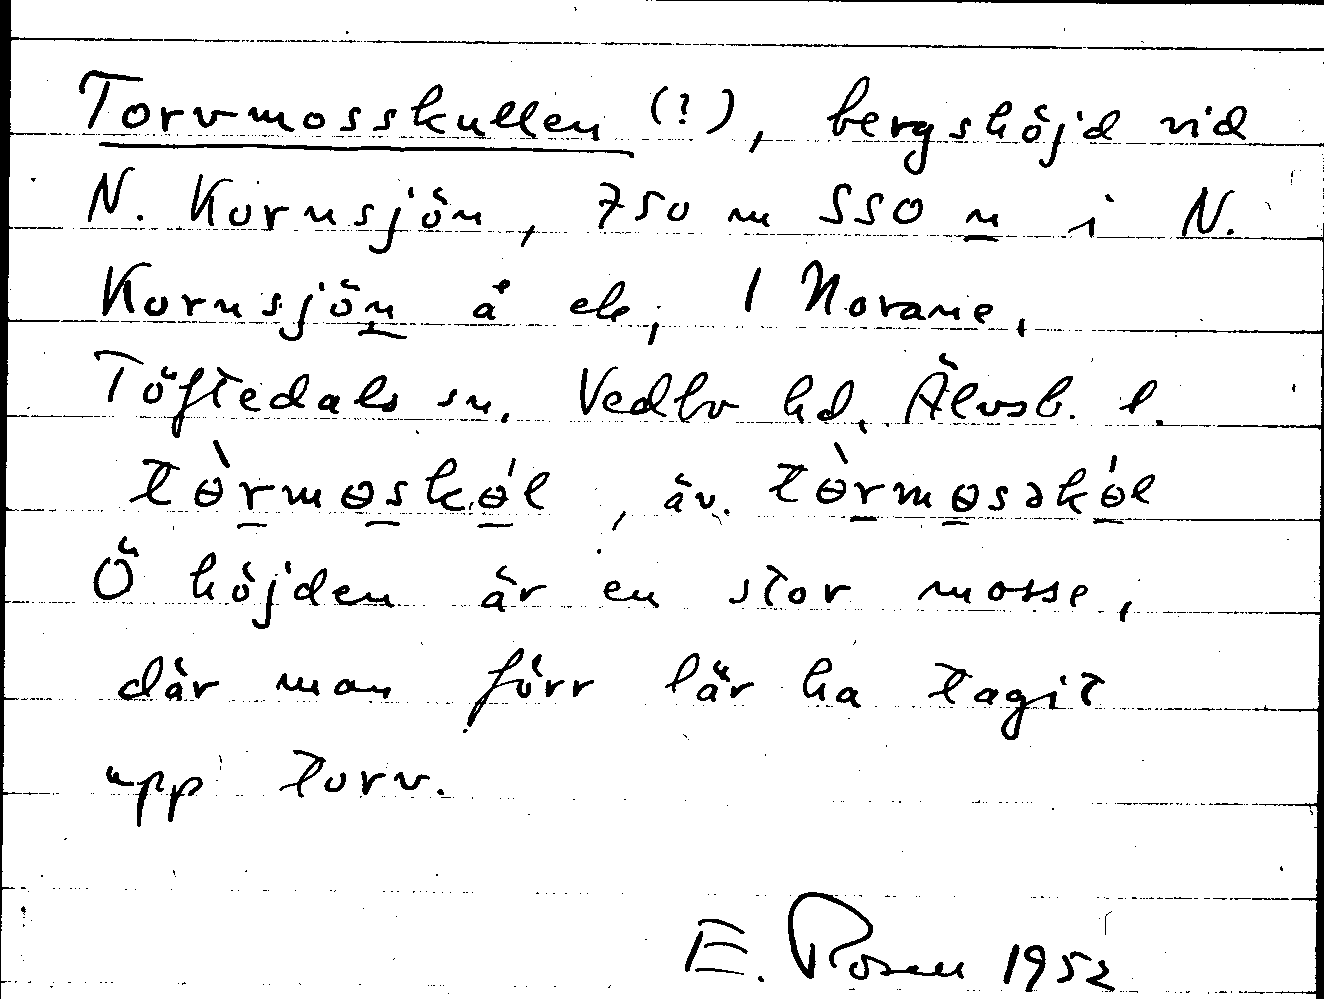 Torvmosskullen (?), bergshöjd vid
N. Kornsjön, 750 m SSO n i N.
Kornsjön å ek, 1 Norane,
Töftedals sn. Vedbo hd, Älvsb. l.
tɵ̀rmɵskɵ́l, äv. tɵ̀rmɵsəkɵ́l
Ö höjden är en stor mosse,
där man förr lär ha tagit
upp torv.
E. Rosen 1952